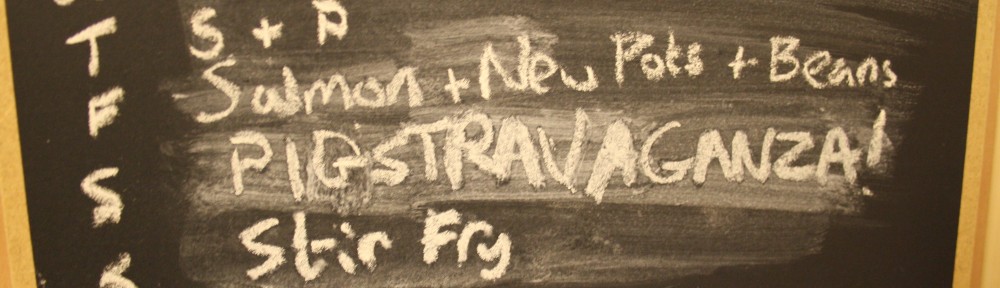 T S + P
F Salmon + New Pots + Beans
S PIGSTRAVAGANZA!
S Stir Fry